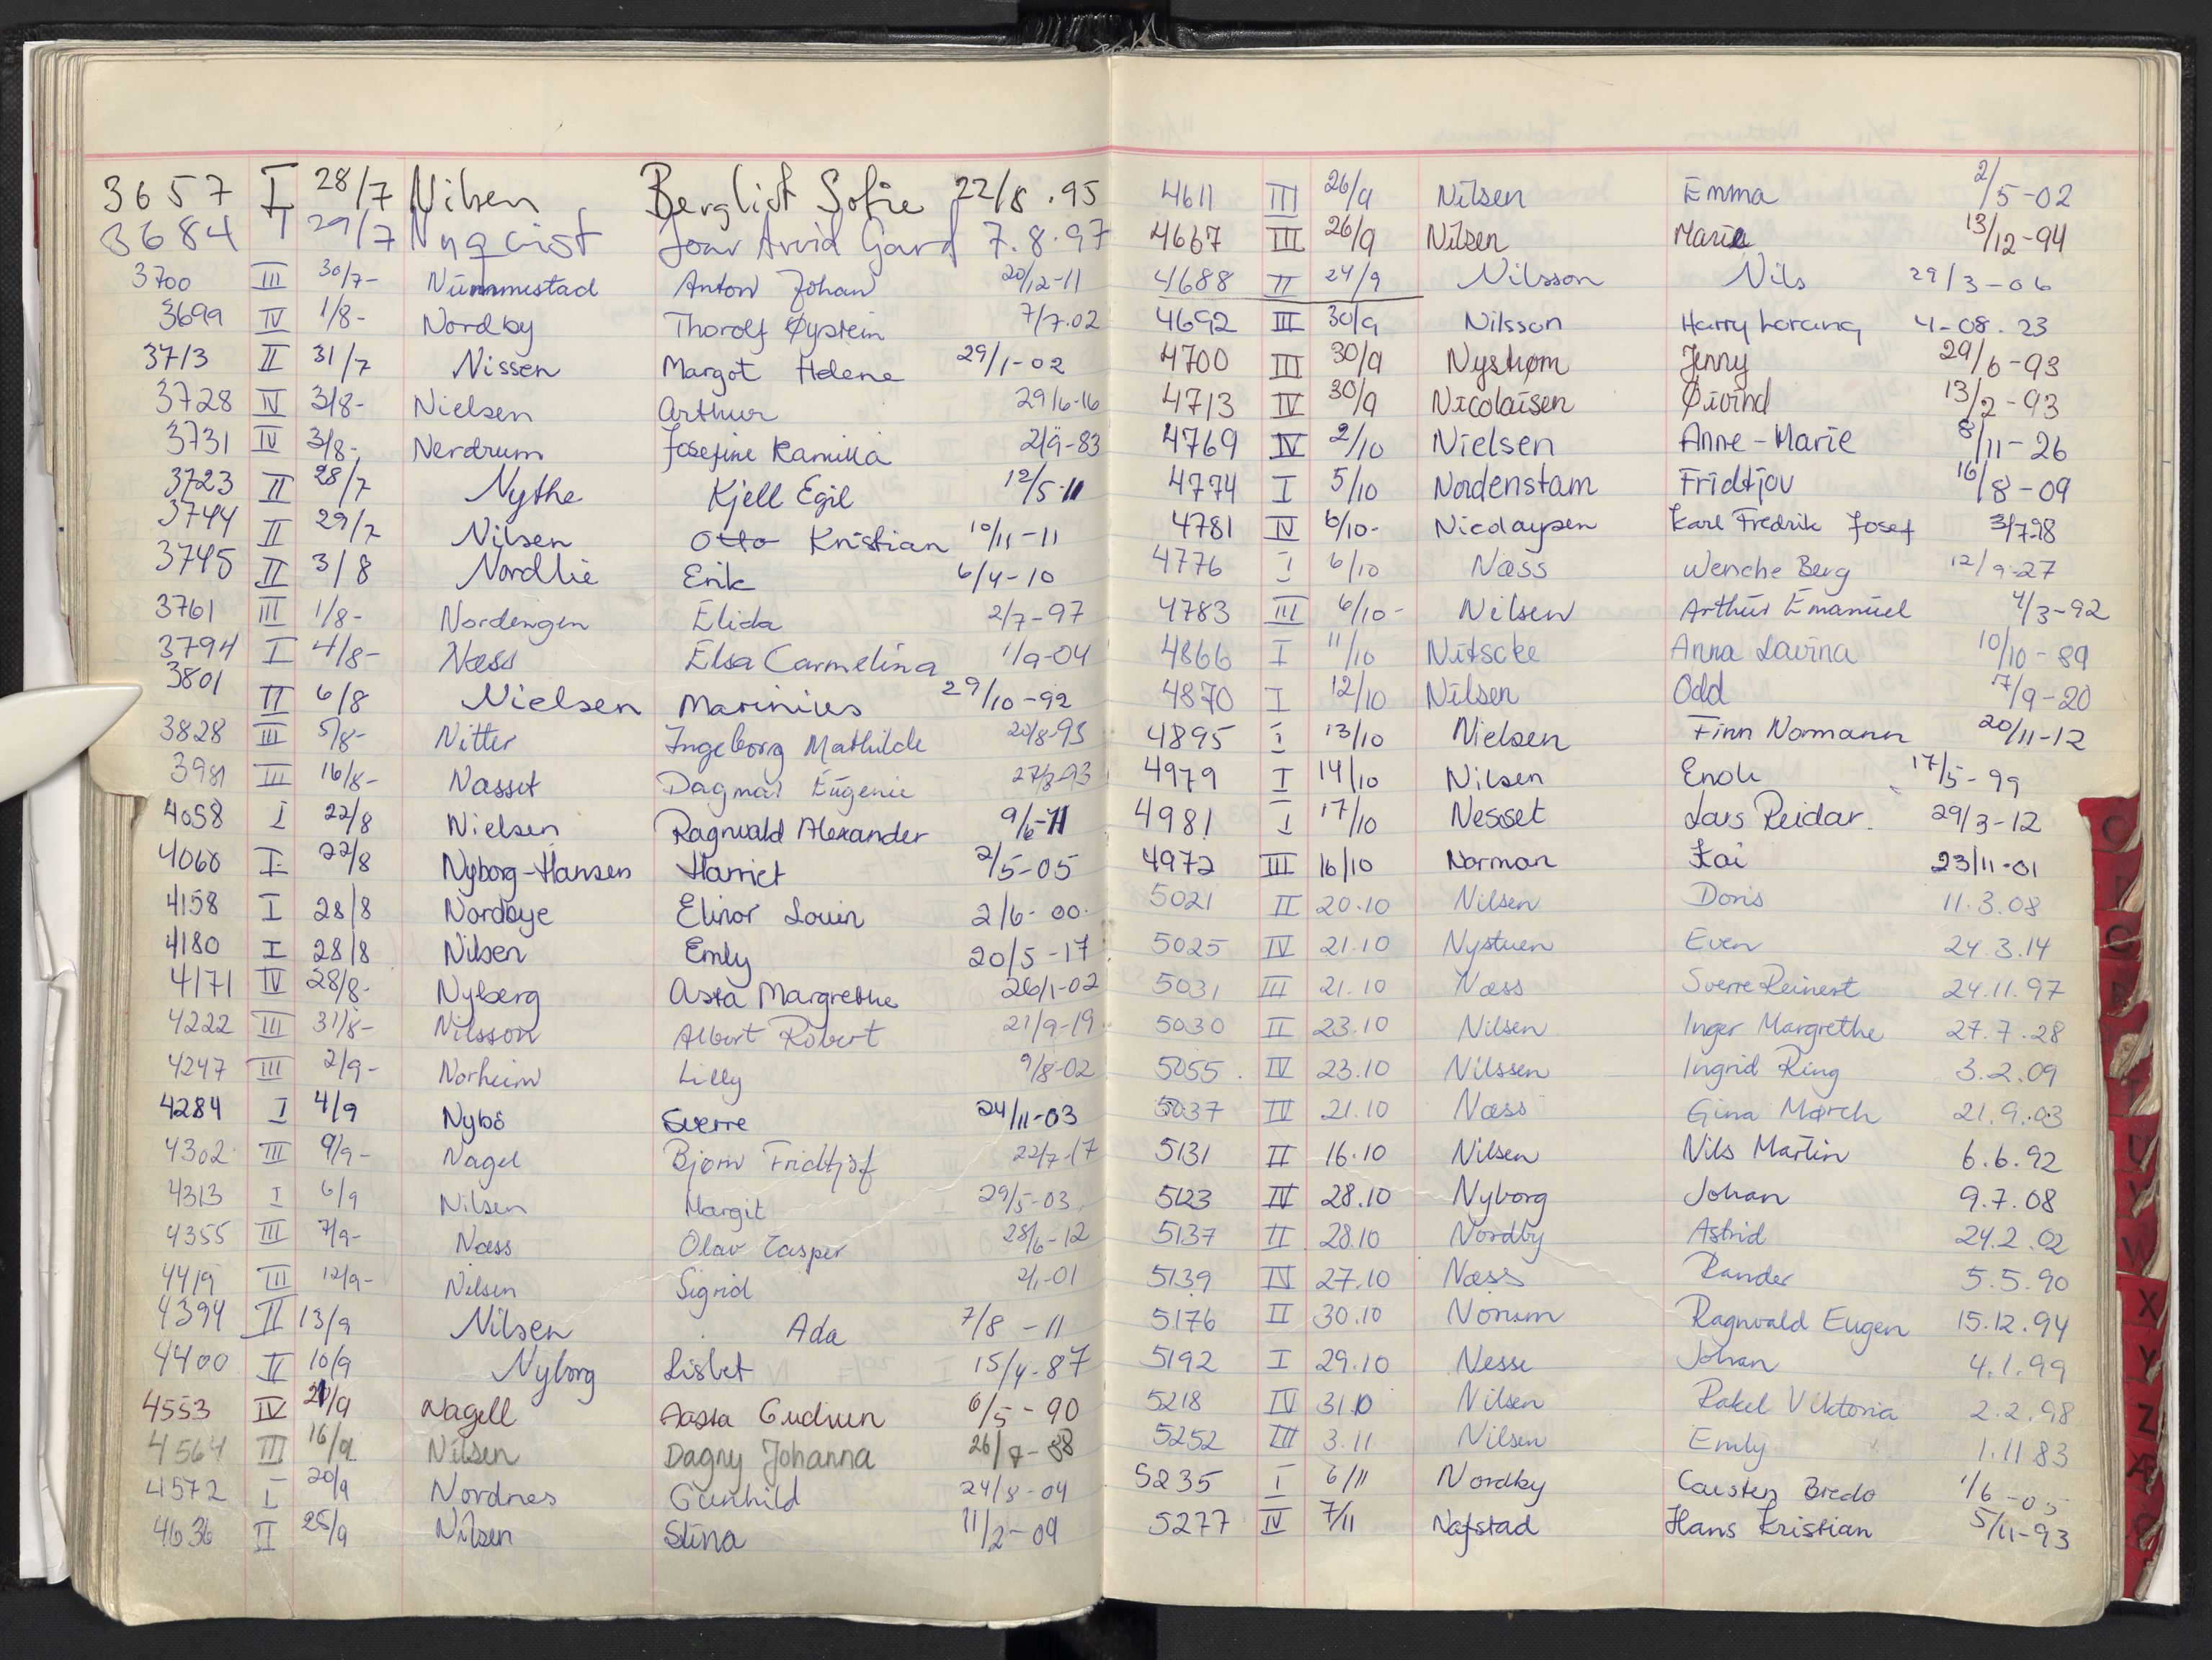 3657 I 28/7 Nilsen Bergliot Sofie 22/8.95
3684 I 29/7 Nyqvist Joar Arvid Gard 7.8.97
3700 III 30/7- Nummestad Anton Johan 20/12-11
3699 IV 1/8- Nordby Thorolf Øystein 7/7.02
3713 II 31/7 Nissen Margot Helene 29/1-02
3728 IV 3/8- Nielsen Arthur 29/6-16
3731 IV 3/8- Nerdrum Josefine Kamilla 2/9-83
3723 II 28/7 Nythe Kjell Egil 12/5-11
3744 II 29/7 Nilsen Otto Kristian 10/11-11
3745 II 3/8 Nordlie Erik 6/4-10
3761 III 1/8- Nordengen Elida 2/7-97
3794 I 4/8- Næss Elsa Carmelina 1/9-04
3801 II 6/8 Nielsen Marinius 29/10-92
3828 III 5/8- Nitter Ingeborg Mathilde
3981 III 16/8- Næsset Dagmar Eugenie
4058 I 22/8 Nielsen Ragnvald Alexander 9/6-11
4060 I 22/8 Nyborg-Hansen Harriet 2/5-05
4158 I 28/8 Nordbye Elinor Louin 2/6-00.
4180 I 28/8 Nilsen Emly 20/5-17
4171 IV 28/8- Nyberg Asta Margrethe 26/1-02
4222 III 31/8- Nilsson Albert Robert 21/9-19
4247 III 2/9- Norheim Lilly 9/8-02
4284 I 4/9 Nybö Sverre 24/11-03
4302 III 9/9- Nagel Bjørn Fridtjof 22/7-17
4313 I 6/9 Nilsen Margit 29/5-03
4355 III 7/9- Næss Olav Casper 28/6-12
4419 III 12/9- Nilsen Sigrid 2/1-01
4394 II 13/9 Nilsen Ada 7/8-11
4400 II 10/9 Nyborg Lisbet 15/4-87
4553 IV 21/9 Nagell Aasta Gudrun 6/5-90
4564 III 16/9 Nilsen Dagny Johanna
4572 I 20/9 Nordnes Gunhild 24/8-04
4636 II 25/9 Nilsen Stina 11/2-09
4611 III 26/9 Nilsen Emma 2/5-02
4667 III 26/9 Nilsen Marie 13/12-94
4688 II 24/9 Nilsson Nils 29/3-06
4692 III 30/9 Nilsson Harry Lorang 4-08.23
4700 III 30/9 Nystrøm Jenny 29/6-93
4713 IV 30/9 Nicolaisen Øivind 13/2-93
4769 IV 2/10 Nielsen Anne-Marie 8/11-26
4774 I 5/10 Nordenstam Fridtjov 16/8-09
4781 IV 6/10- Nicolaysen Karl Fredrik Josef 3/7-98
4776 I 6/10 Næss Wenche Berg 12/9-27
4783 III 6/10- Nilsen Arthur Emanuel 4/3-92
4866 I 11/10 Nitscke Anna Lavina 10/10-89
4870 I 12/10 Nilsen Odd 17/9-20
4895 I 13/10 Nielsen Finn Normann 20/11-12
4979 I 14/10 Nilsen Enok 17/5-99
4981 I 17/10 Nesset Lars Reidar. 29/3-12
4972 III 16/10 Norman Kai 23/11-01
5021 II 20.10 Nilsen Doris 11.3.08
5025 IV 21.10 Nystuen Even 24.3.14
5031 III 21.10 Næss Sverre Reinert 24.11.97
5030 II 23.10 Nilsen Inger Margrethe 27.7.28
5055. IV 23.10 Nilssen Ingrid Ring 3.2.09
5037 IV 21.10 Næss Gina Mørch 21.9.03
5131 II 16.10 Nilsen Nils Martin 6.6.92
5123 IV 28.10 Nyborg Johan 9.7.08
5137 II 28.10 Nordby Astrid 24.2.02
5139 IV 27.10 Næss Rander 5.5.90
5176 II 30.10 Norum Ragnvald Eugen 15.12.94
5192 I 29.10 Nesse Johan 4.1.99
5218 IV 31.10 Nilsen Rakel Viktoria 2.2.98
5252 III 3.11 Nilsen Emly 1.11.83
5235 I 6/11 Nordby Carsten Bredo 1/6-05
5277 IV 7/11 Nafstad Hans Kristian 5/11-93
U
W
X
Y
Z
Æ